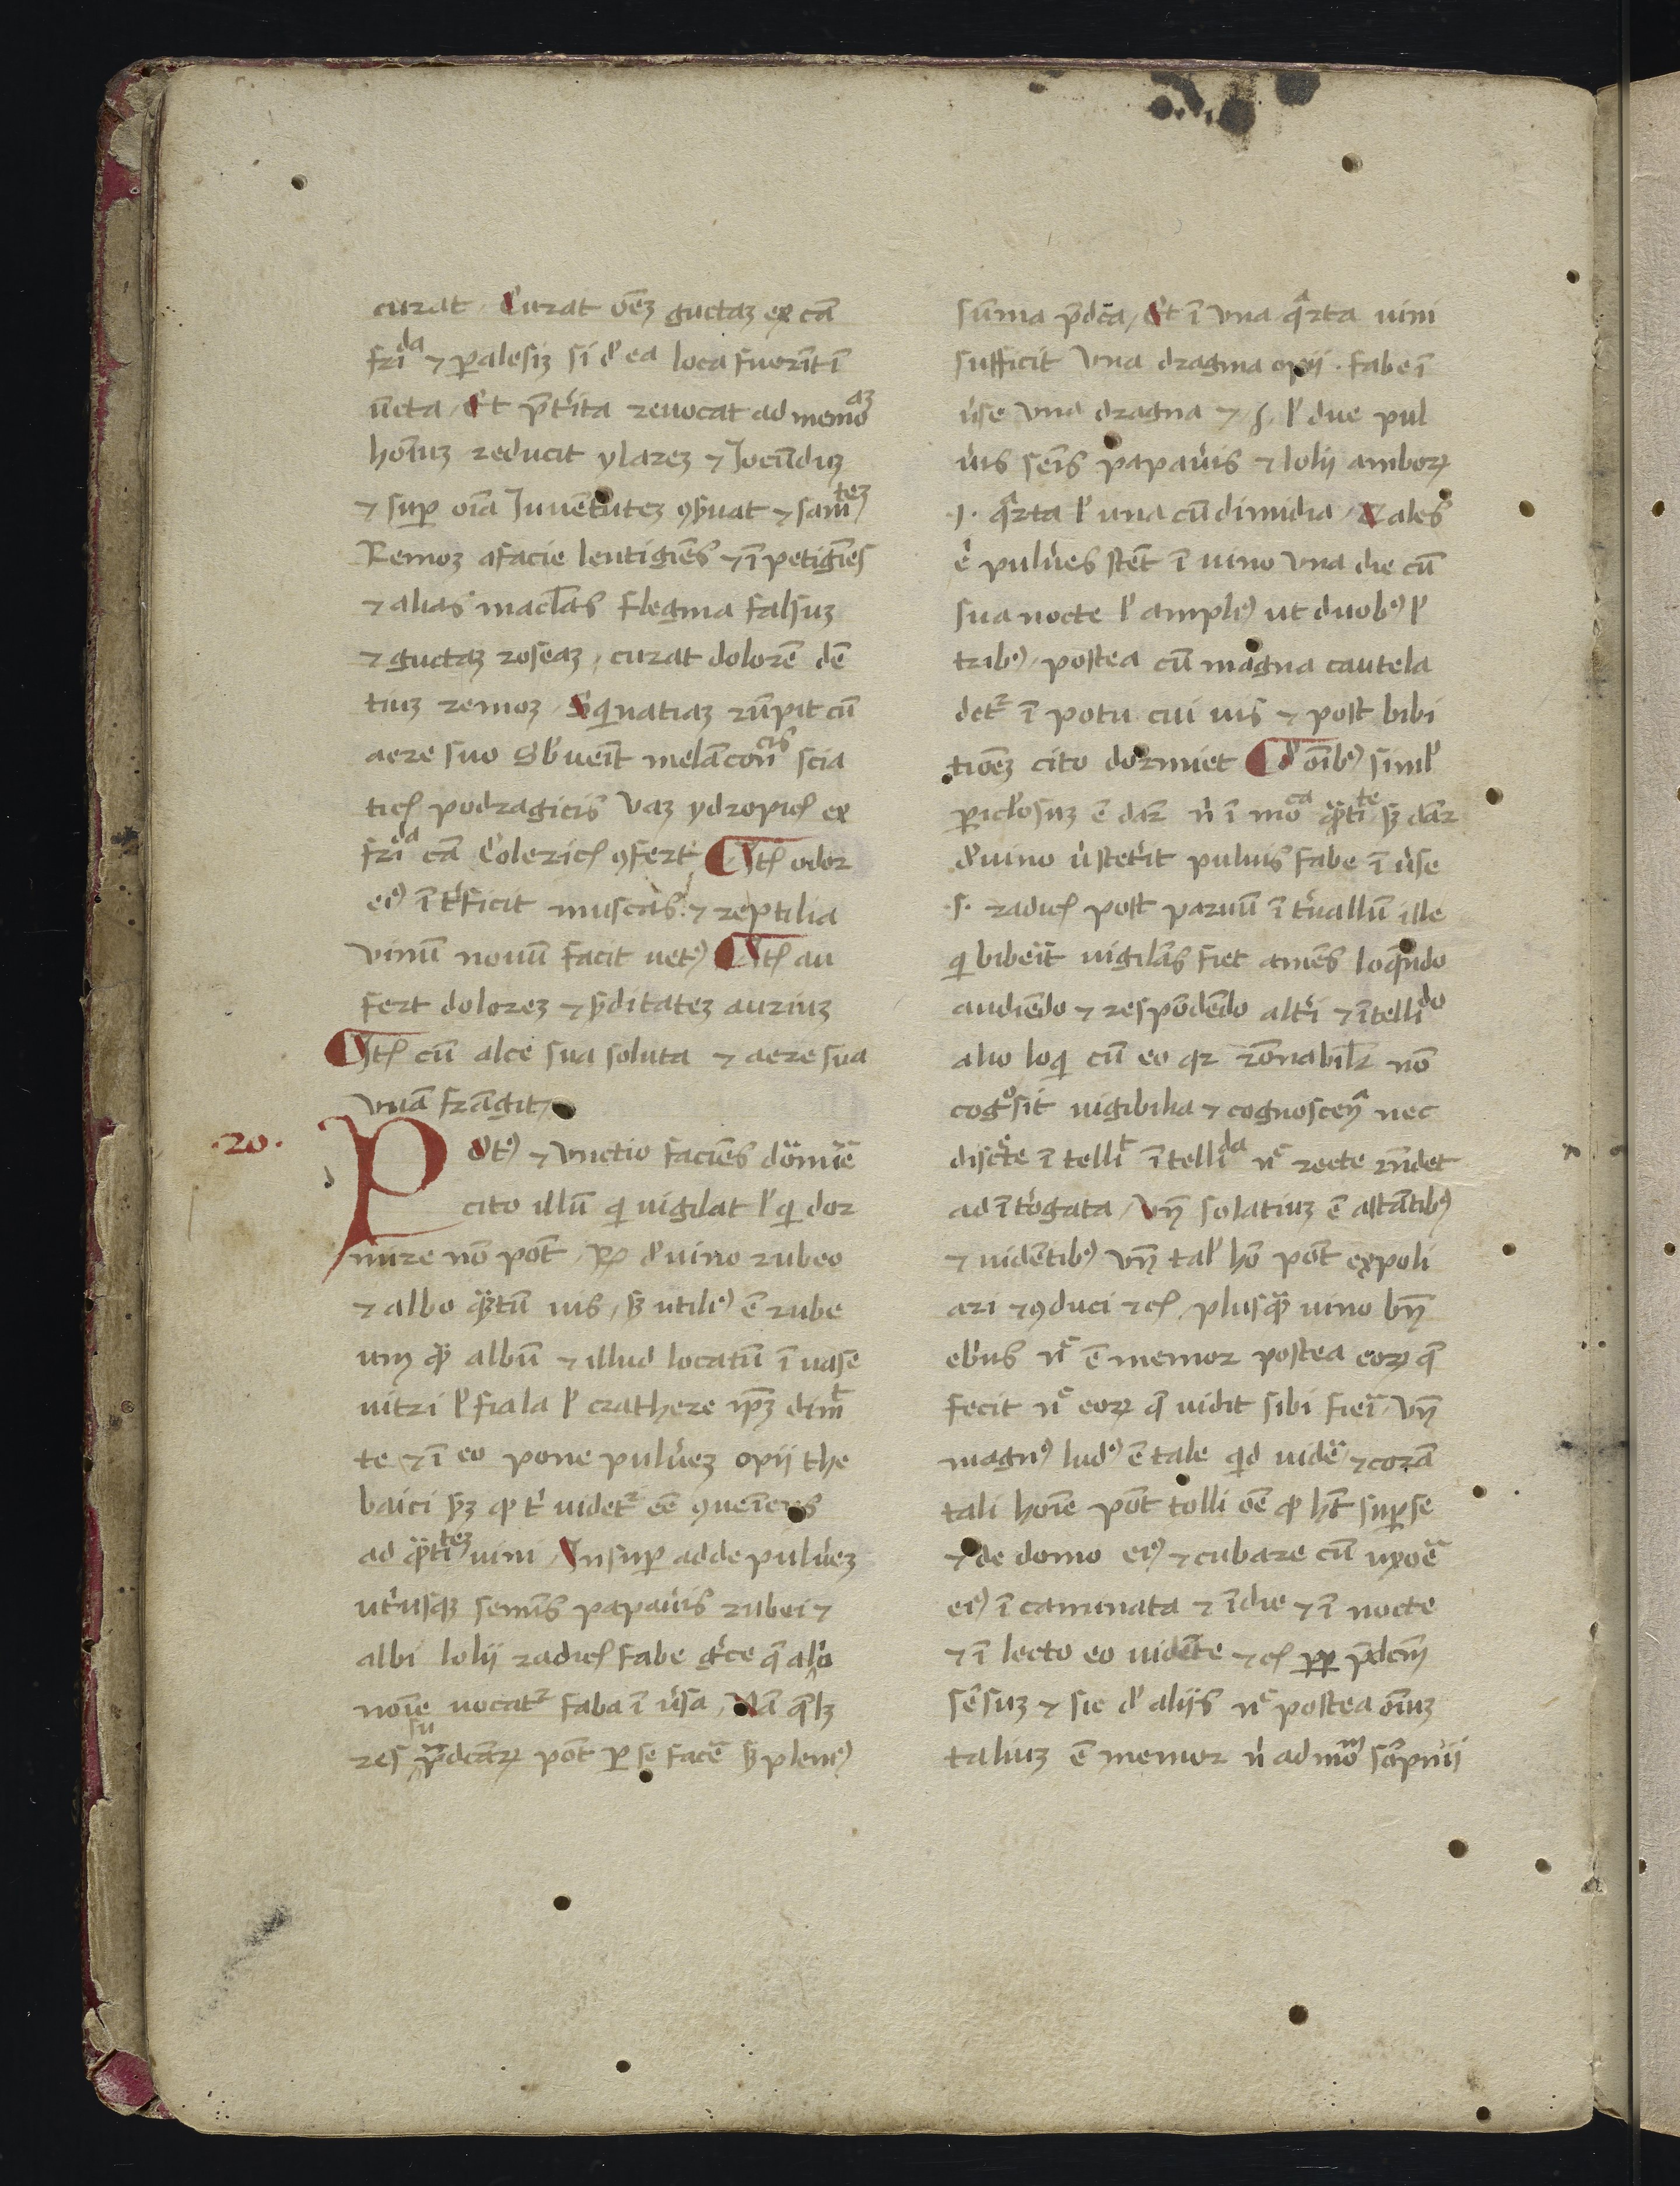 curat. Curat oēz guctaz ex cā
frīda ⁊ ꝑalesiz si d' ea loca fuerīt ī
ūcta, Et p̄t'ita reuocat ad memoaz
hoīuz reducit ylarez ⁊ Jocūduz
⁊ suꝑ oīa Juuētutez ꝯs'uat ⁊ sanitez
Remoz a facie lentigīes ⁊ īpetigīes
⁊ alias macl'as flegma falsuz
⁊ guctaz roseaz, curat dolorē dē
tiuz remoz, Sqinatiaz rūpit cū
aere suo Sb'ueīt melāconcis scia
ticꝭ podragicis Vaz ydropicꝭ ex
frīda cā Colericꝭ ꝯfert, Itꝭ odor
eiꝰ īt'ficit muscas: ⁊ reptilia
vinū nouū facit uetꝰ Itꝭ au
fert dolorez ⁊ s'ditatez auriuz
Itꝭ cū alce sua soluta ⁊ aere sua
vuā frāgit,
.20.
Potꝰ ⁊ vnctio faciēs dormīe
cito illū qi uigilat l' qi dor
mire nō pōt, Rꝫ d' uino rubeo
⁊ albo qᷓtū uis, sꝫ utilꝰ ē rube
um qᷓ albū ⁊ illud locatū ī uase
uitri l' fiala l' crathere ip̄z dimit
te ⁊ ī eo pone pulu'ez opii the
baici sꝫ ꝙ t' uidetᷣ eē ꝯueīens
ad qᷓtitez uini, Insuꝑ adde pulu'ez
ut'usqꝫ semīs papau'is rubei ⁊
albi lolii radicꝭ fabe g'ce q̄ alio
noīe uocatᷣ faba īu'sa, Nā qlꝫ
res sup̄dcāꝝ pōt ꝑ se facē sꝫ plenꝰ
sūma p̄dc̄a, Et ī vna qᷓrta uini
sufficit vna dragma opii. fabe ī
u'se vna dragma ⁊ s. l' due pul
u'is seīs papau'is ⁊ lolii amboꝝ
.j. qᷓrta l' una cū dimidia, Tales
ē pulu'es stēt ī uino vna die cū
sua nocte l' amplꝰ ut duobꝰ l'
tribꝰ, postea cū magna cautela
detᷣ ī potu cui uis ⁊ post bibi
tioēz cito dormiet d' oībꝰ simil'
ꝑicl'osuz ē dar n' ī moca qᷓtite sꝫ dar
d' uino u' stet'it puluis fabe ī u'se
.s. radicꝭ post paruū īt'uallū ille
qi bibeīt uigilās fiet amēs loqᷓndo
audiēdo ⁊ respōdēdo alt'i ⁊ ītellido
alio loqi cū eo qr rōnabilr nō
cogͦsit uigibilia ⁊ cognoscen̄ nec
discᷓte ītellit ītellida nͨ recte rn̄det
ad īt'ogata, Vn̄ solatiuz ē astātibꝰ
⁊ uidētibꝰ vn̄ tal' hō pōt expoli
ari ⁊ ꝯduci ⁊cꝭ, plusqᷓ uino bn̄
eb'us nͨ ē memor postea eoꝝ q̄
fecit nͨ eoꝝ q̄ uidit sibi fieri, vn̄
magnꝰ ludꝰ ē tale qid uidē, ⁊ corā
tali hoīe pōt tolli oē ꝙ hēt suꝑ se
⁊ de domo eiꝰ ⁊ cubare cū uxoē
eiꝰ ī caminata ⁊ ī die ⁊ ī nocte
⁊ ī lecto eo uidēte ⁊cꝭ ꝓp p̄dcm̄
sēsuz ⁊ sic d' aliis nͨ postea oīuz
taliuz ē memor n' ad mōm sōpnii